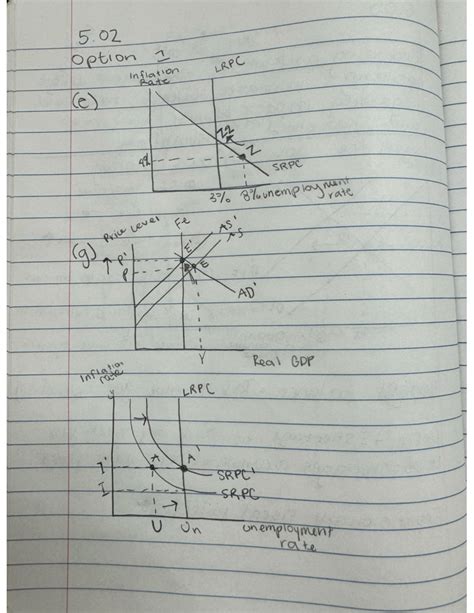 5.02
Option 1
Inflation Rate
LRPC
(e)
ZZ
Z
4%
SRPC
3% 8% unemployment rate
Price Level
Fe
AS'
AS
(g)
P'
E'
P
E
AD'
Y
Real GDP
Inflation rate
LRPC
A
A'
I'
SRPC'
I
SRPC
U
Un
unemployment rate